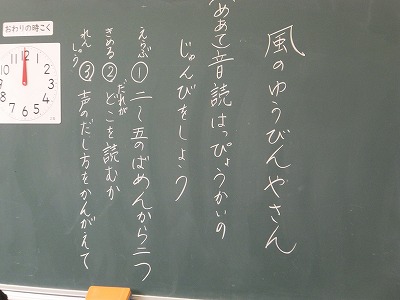 風のゆうびんやさん
めあて音読はっぴょうかいの
じゅんびをしよう
えらぶ①二〜五のばめんから二つ
きめる②だれがどこを読むか
れんしゅう③声のだし方をかんがえて
おわりの時こく
12
1
2
3
4
5
6
7
8
9
10
11